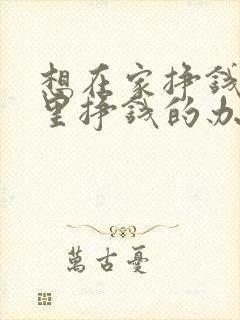 想在家挣钱
里挣钱的办
萬古憂